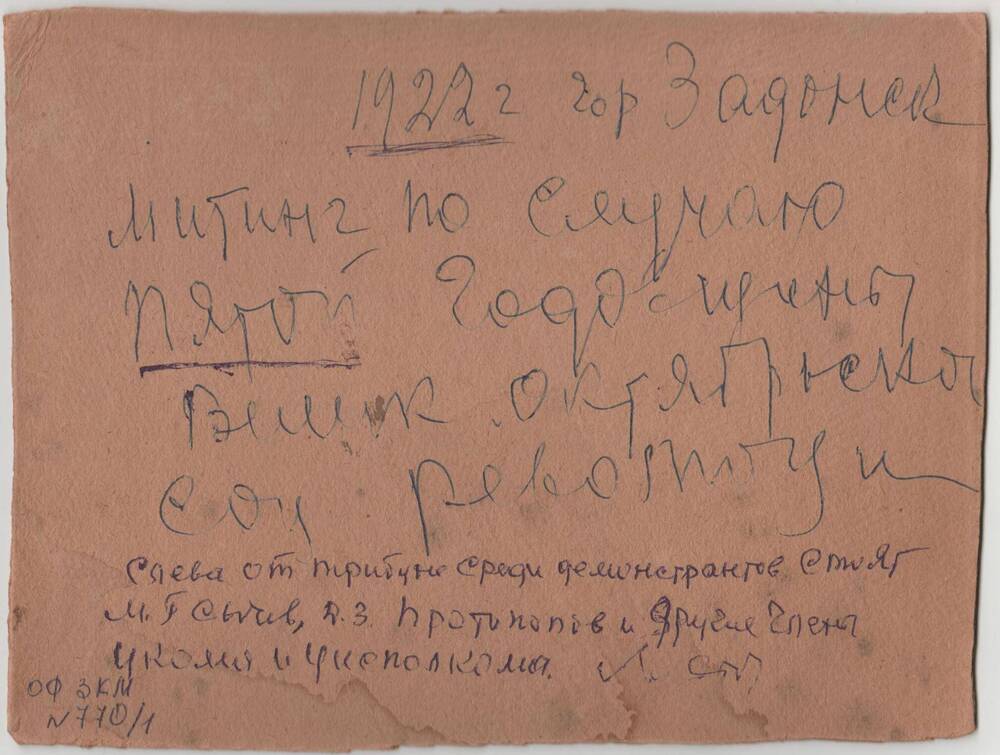 1922 г гор Задонск
митинг по случаю
пятой годовщины
Велик. Октябрьской
соц революции
слева от трибуны среди демонстрантов стоят
М.Г Сычев, Д.З. Протопопов и другие члены
укома и уисполкома.
ОФ ЗКМ
N 770/1